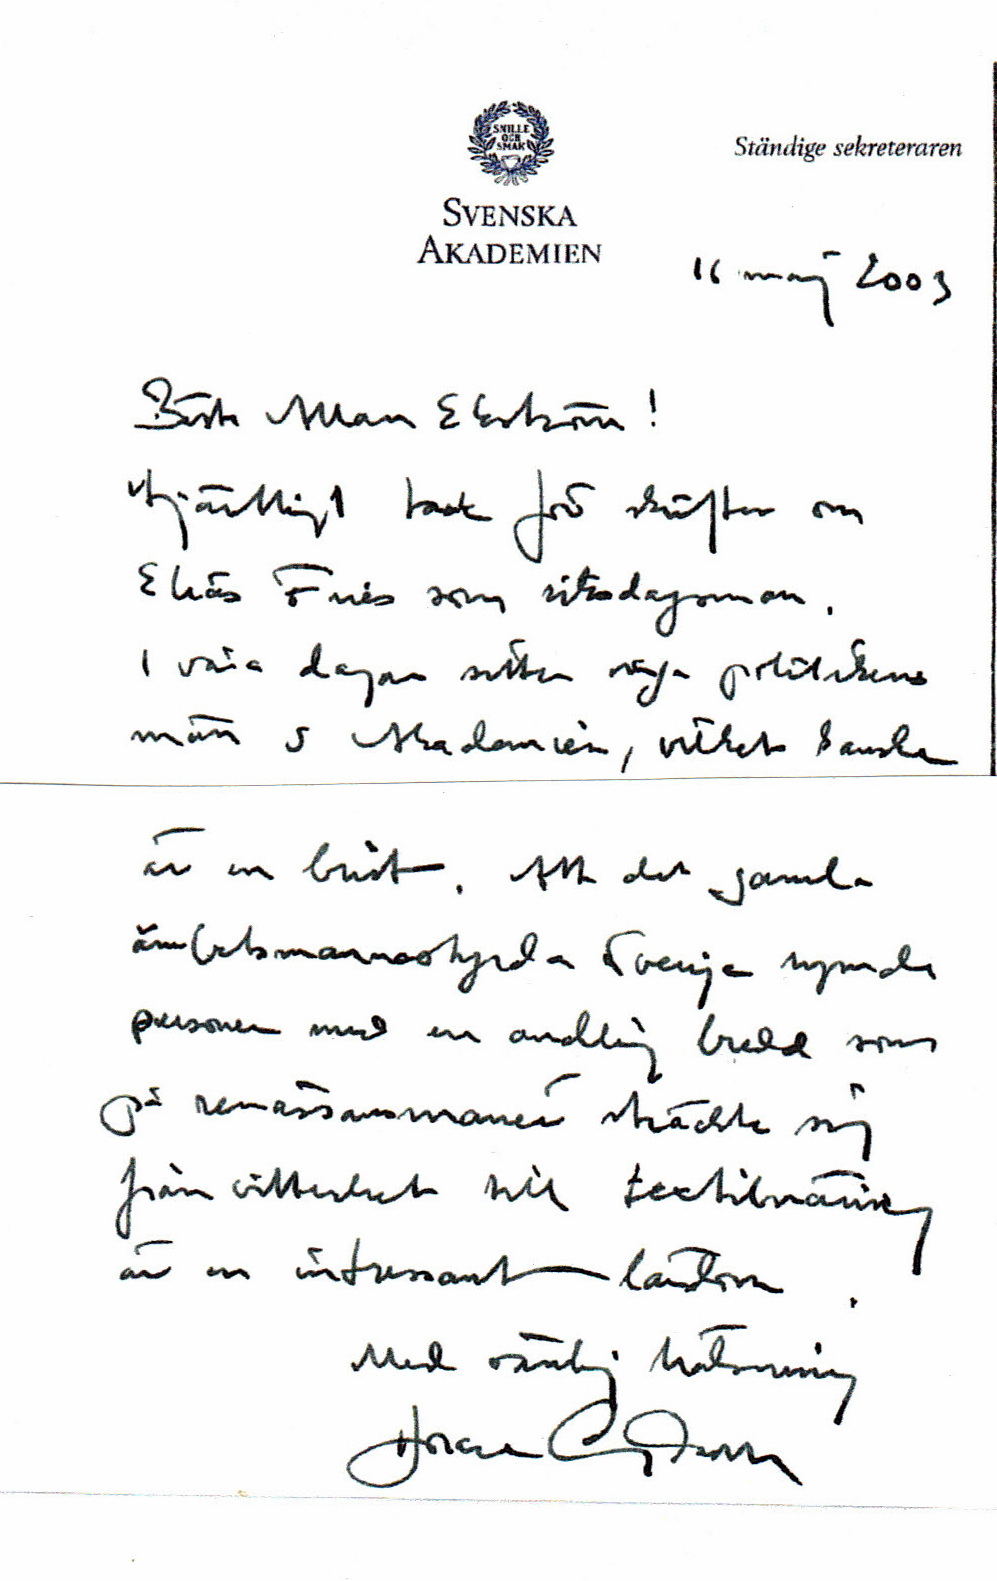 SNILLE
OCH
SMAK
Ständige sekreteraren
SVENSKA
AKADEMIEN
16 maj 2003
Bäste Allan Ekström!
Hjärtligt tack för skriften om
Elias Fries som riksdagsman.
I våra dagar sitter inga politikens
män i Akademien, vilket kanske
är en brist. Att det gamla
ämbetsmannastyrda Sverige rymde
personer med en andlig bredd som
på renässansmanér sträckte sig
från vitterhet till textilnäring
är en intressant lärdom.
Med vänlig hälsning
Horace Engdahl